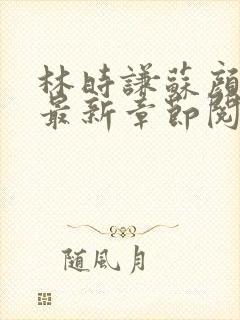 林時謙蘇顏
最新章節閱
随風月